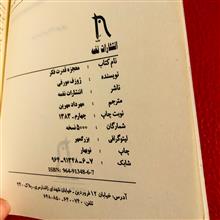 انتشارات نغمه
نام کتاب: معجزه قدرت فکر
نویسنده: ژوزف مورفی
ناشر: انتشارات نغمه
مترجم: مهرداد مهرین
نوبت چاپ: چهارم - ۱۳۸۳
شمارگان: ۵۰۰۰ نسخه
لیتوگرافی: بزرگمهر
چاپ: نوبهار
شابک: ۹۶۴-۹۱۳۴۸-۶-۷
ISBN: 964-91348-6-7
آدرس: خیابان ۱۲ فروردین - خیابان شهدای ژاندارمری - پلاک
تلفن: